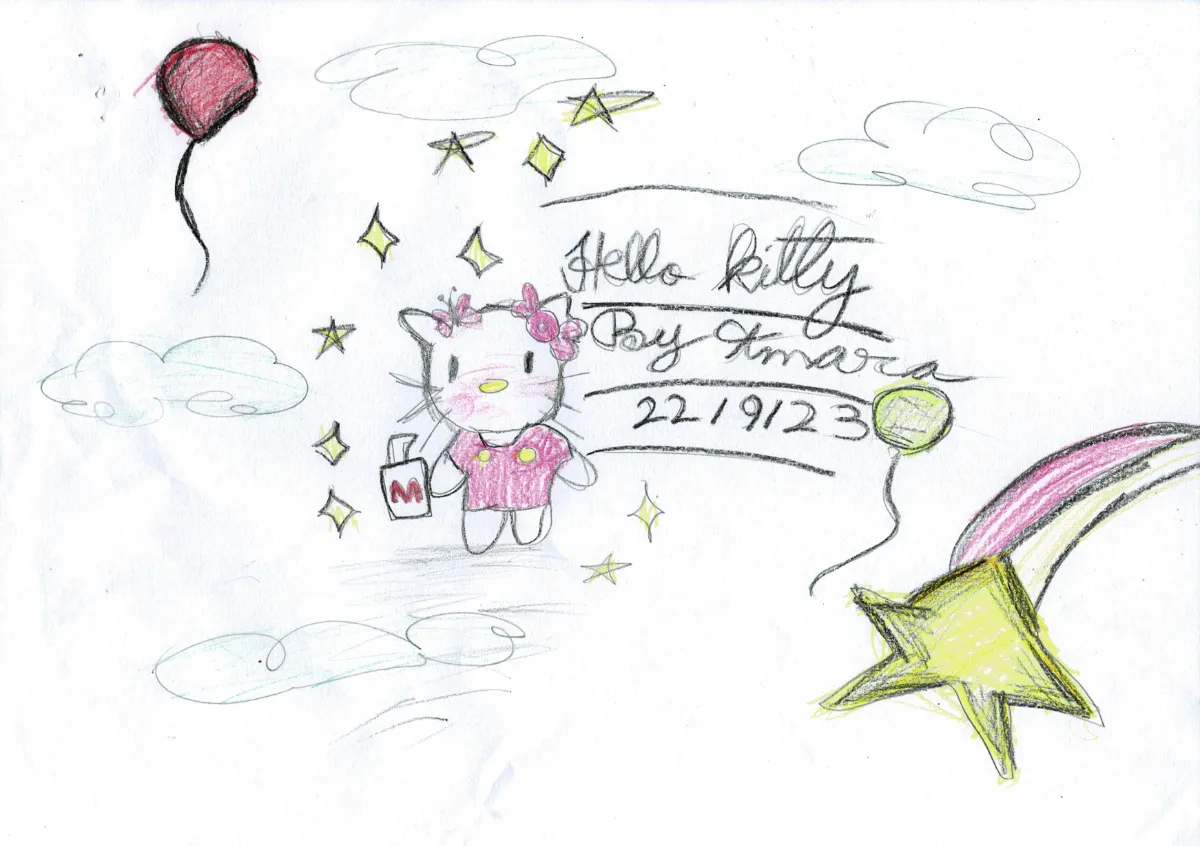 Hello kitty
By Amara
22/9/23
M